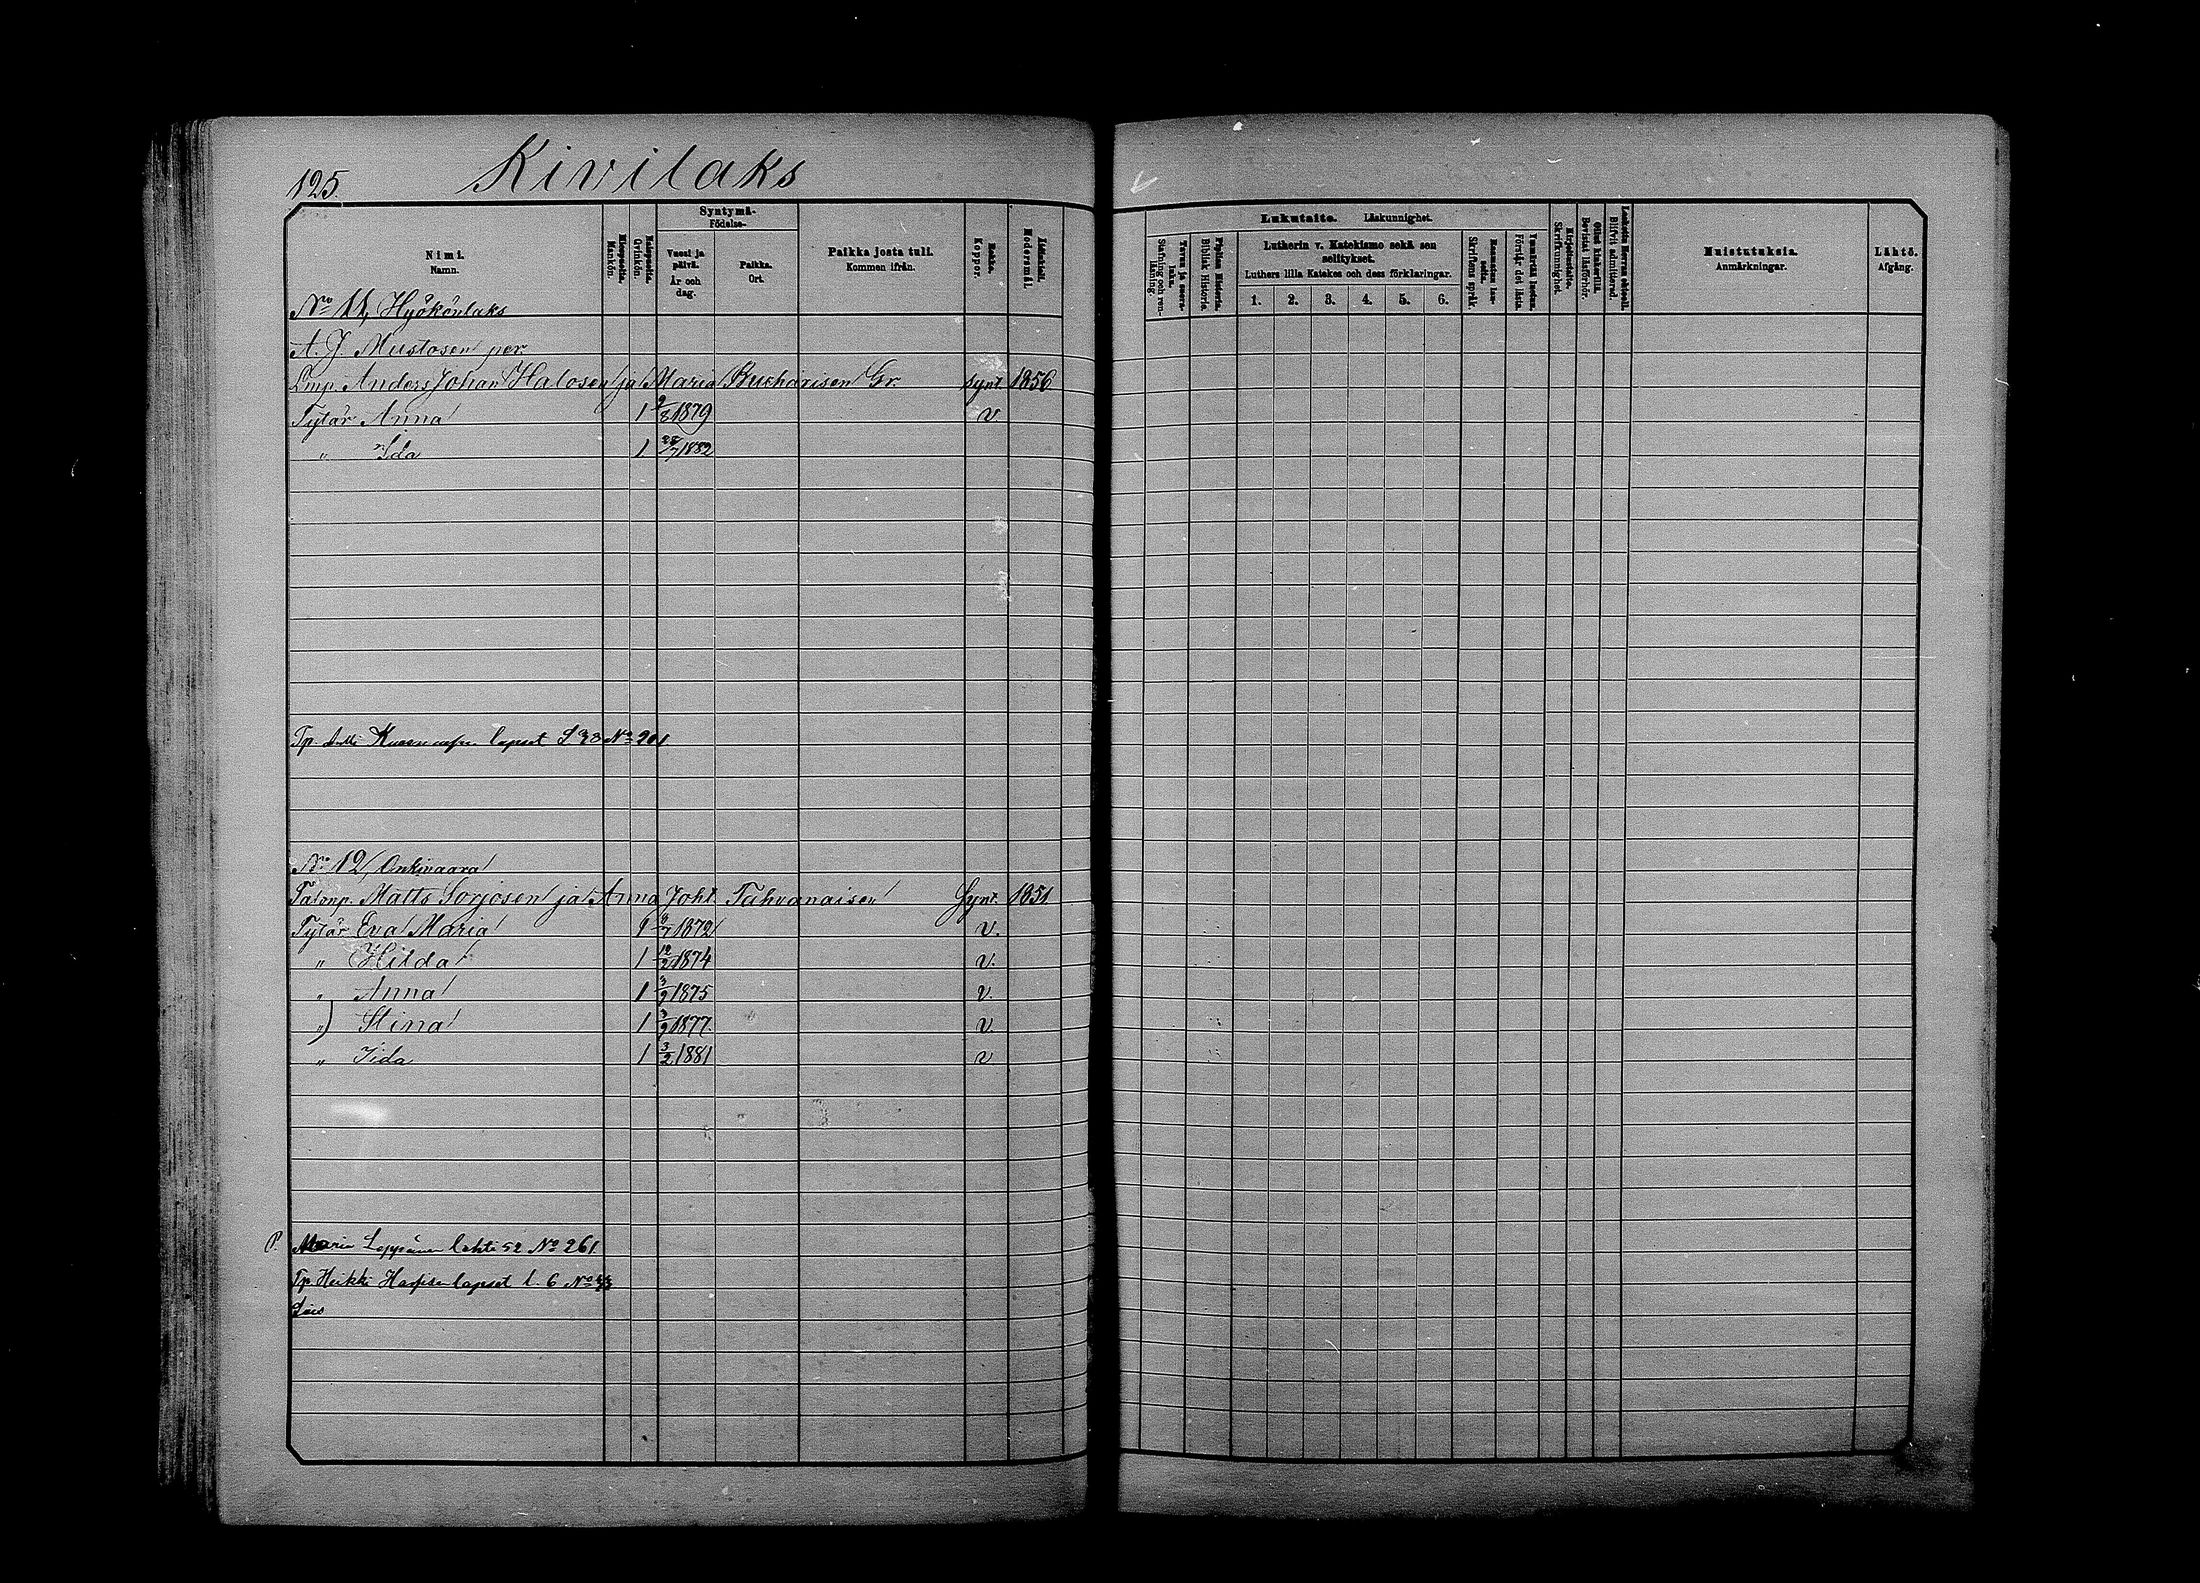 125. Kivilaks
Nimi. Namn.
Miespuolia. Mankön.
Naispuolia. Qvinkön.
Syntymä- Födelse-
Vuosi ja päivä. År och dag.
Paikka. Ort.
Paikka josta tuli. Kommen ifrån.
Rokko. Koppor.
Äidinkieli. Modersmål.
Lukutaito. Läskunnighet.
Tavaa ja seura-luku. Stafning och ren-läsning.
Piplian Historia. Biblisk Historie
Lutherin v. Katekismo sekä sen selitykset.
Luthers lilla Katekes och dess förklaringar.
1. 2. 3. 4. 5. 6.
Raamatun lau-seita. Skriftens språk.
Ymmärtää luetun. Förstår det lästa.
Kirjoitustaito. Skrifkunnighet.
Ollut lukusilla. Bevistat läsförhör.
Laskettu Herran ehtoolle. Blifvit admitterad.
Muistutuksia. Anmärkningar.
Lähtö. Afgång.
No 11, Hyökönlaks
A. J. Mustosen per.
Lmp. Anders Johan Halosen ja Maria Bucharisen Gr. Synt. 1856
Tytär Anna 1 9/8 1879 v.
" Ida 1 28/7 1882
Tp. Antti lapset S 38 No 201
No 12, Onkivaara
Talonp. Matts Sorjosen ja Anna Joht. Tahvanaisen Synt. 1851
Tytär Eva Maria 1 8/7 1872 v.
" Hilda 1 12/2 1874 v.
" Anna 1 3/9 1875 v.
" Stina 1 3/9 1877. v.
" Iida 1 3/2 1881 v
P. Maria Leppänen lehti 52 No 261
Tp. Heikki lapset l. 6 No